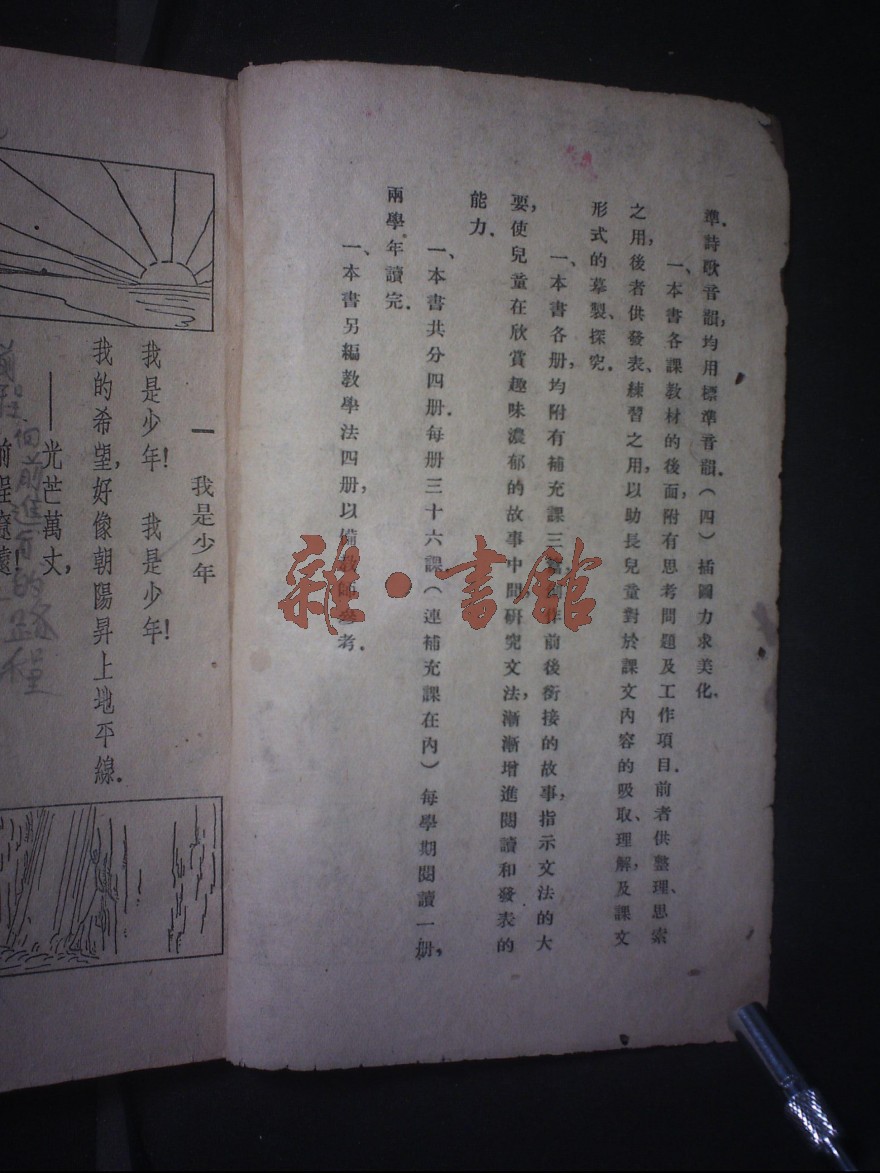 準.詩歌音韻,均用標準音韻.(四)插圖力求美化.
一、本書各課教材的後面,附有思考問題及工作項目.前者供整理、思索
之用,後者供發表、練習之用,以助長兒童對於課文內容的吸取、理解,及課文
形式的摹製、探究.
一、本書各册,均附有補充課三作前後銜接的故事,指示文法的大
要,使兒童在欣賞趣味濃郁的故事中間研究文法,漸漸增進閱讀和發表的
能力.
一、本書共分四册.每册三十六課(連補充課在內)每學期閱讀一册,
兩學年讀完.
一、本書另編教學法四册,以備教師參考.
雜·書館
一 我是少年
我是少年! 我是少年!
我的希望,好像朝陽昇上地平線.
——光芒萬丈,
前程遼遠!
向前進的路程